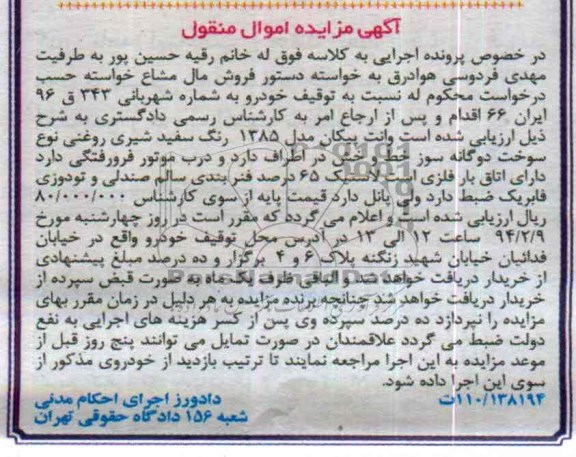 آگهی مزایده اموال منقول
در خصوص پرونده اجرایی به کلاسه فوق له خانم رقیه حسین پور به طرفیت
مهدی فردوسی هوادرق به خواسته دستور فروش مال مشاع خواسته حسب
درخواست محکوم له نسبت به توقیف خودرو به شماره شهربانی ۳۴۳ ق ۹۶
ایران ۶۶ اقدام و پس از ارجاع امر به کارشناس رسمی دادگستری به شرح
ذیل ارزیابی شده است وانت پیکان مدل ۱۳۸۵ رنگ سفید شیری روغنی نوع
سوخت دوگانه سوز خط و خش در اطراف دارد و درب موتور فرورفتگی دارد
دارای اتاق بار فلزی است لاستیک ۶۵ درصد فنر بندی سالم صندلی و تودوزی
فابریک ضبط دارد ولی پانل دارد قیمت پایه از سوی کارشناس ۸۰/۰۰۰/۰۰۰
ریال ارزیابی شده است و اعلام می گردد که مقرر است در روز چهارشنبه مورخ
۹۴/۲/۹ ساعت ۱۲ الی ۱۳ در آدرس محل توقیف خودرو واقع در خیابان
فدائیان خیابان شهید زنگنه پلاک ۶ و ۴ برگزار و ده درصد مبلغ پیشنهادی
از خریدار دریافت خواهد شد و الباقی ظرف یک ماه به صورت قبض سپرده از
خریدار دریافت خواهد شد چنانچه برنده مزایده به هر دلیل در زمان مقرر بهای
مزایده را نپردازد ده درصد سپرده وی پس از کسر هزینه های اجرایی به نفع
دولت ضبط می گردد علاقمندان در صورت تمایل می توانند پنج روز قبل از
موعد مزایده به این اجرا مراجعه نمایند تا ترتیب بازدید از خودروی مذکور از
سوی این اجرا داده شود.
۱۱۰/۱۳۸۱۹۴ت
دادورز اجرای احکام مدنی
شعبه ۱۵۶ دادگاه حقوقی تهران